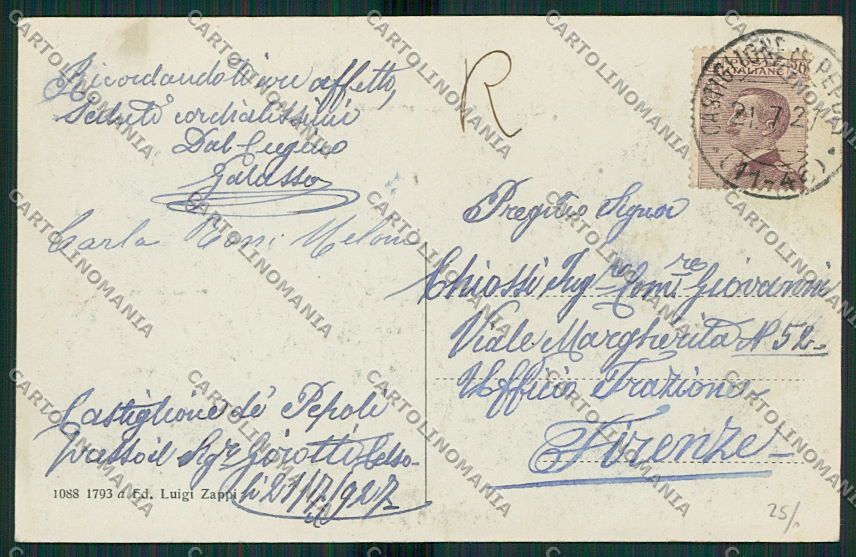 Ricordandoti
affetti,
Saluti cordialissimi
Dal Cugino
Galasso
Carla Toni Meloni
Castiglione de' Pepoli
presso il Sgr Girotti Celso
li 21/7/927
1088 1793 a Ed. Luigi Zappi
R
50
ITALIANE
CASTIGLIONE PEPOLI
21.7.27
Pregino Signor
Chiossi Ingre Comre Giovanni
Viale Margherita N 52
Ufficio Trazione
Firenze
25/.
CARTOLINOMANIA